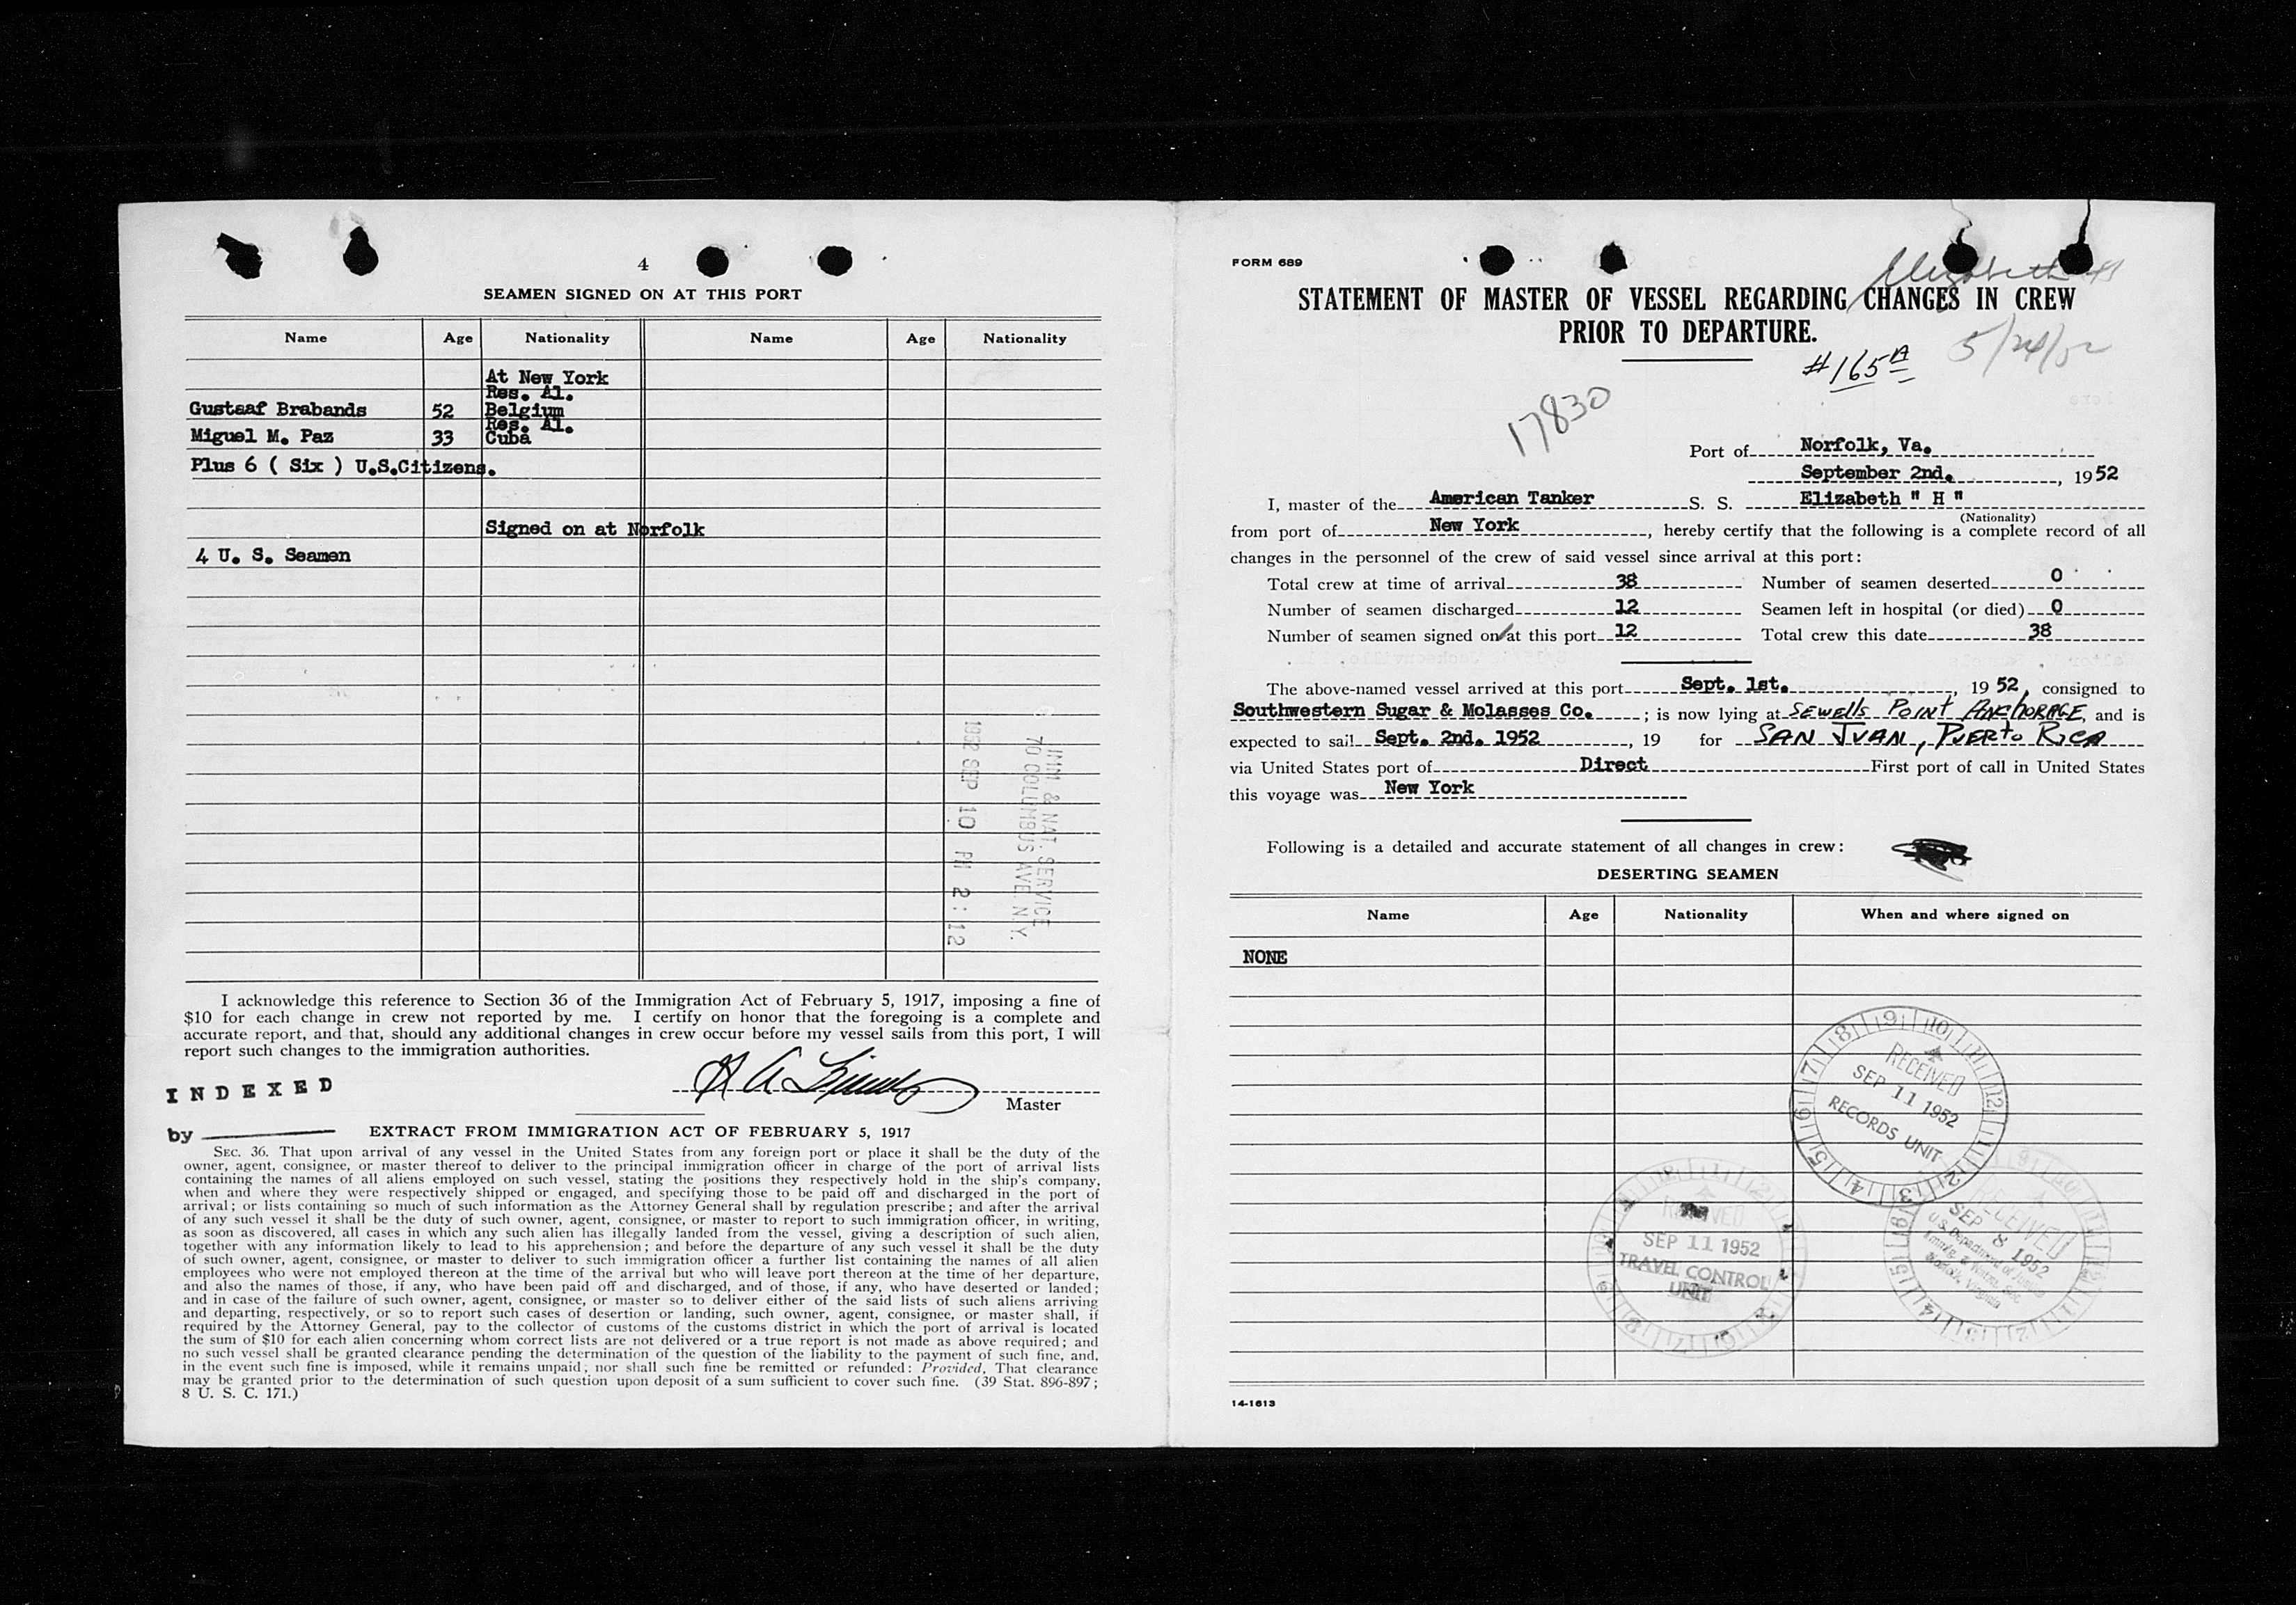 4
SEAMEN SIGNED ON AT THIS PORT
Name Age Nationality Name Age Nationality
At New York
Res. Al.
Gustaaf Brabands 52 Belgium
Res. Al.
Miguel M. Paz 33 Cuba
Plus 6 ( Six ) U.S.Citizens.
Signed on at Norfolk
4 U. S. Seamen
IMM. & NAT. SERVICE
70 COLUMBUS AVE. N.Y.
1952 SEP 10 PM 2:12
I acknowledge this reference to Section 36 of the Immigration Act of February 5, 1917, imposing a fine of
$10 for each change in crew not reported by me. I certify on honor that the foregoing is a complete and
accurate report, and that, should any additional changes in crew occur before my vessel sails from this port, I will
report such changes to the immigration authorities.
INDEXED
Master
by
EXTRACT FROM IMMIGRATION ACT OF FEBRUARY 5, 1917
SEC. 36. That upon arrival of any vessel in the United States from any foreign port or place it shall be the duty of the
owner, agent, consignee, or master thereof to deliver to the principal immigration officer in charge of the port of arrival lists
containing the names of all aliens employed on such vessel, stating the positions they respectively hold in the ship's company,
when and where they were respectively shipped or engaged, and specifying those to be paid off and discharged in the port of
arrival; or lists containing so much of such information as the Attorney General shall by regulation prescribe; and after the arrival
of any such vessel it shall be the duty of such owner, agent, consignee, or master to report to such immigration officer, in writing,
as soon as discovered, all cases in which any such alien has illegally landed from the vessel, giving a description of such alien,
together with any information likely to lead to his apprehension; and before the departure of any such vessel it shall be the duty
of such owner, agent, consignee, or master to deliver to such immigration officer a further list containing the names of all alien
employees who were not employed thereon at the time of the arrival but who will leave port thereon at the time of her departure,
and also the names of those, if any, who have been paid off and discharged, and of those, if any, who have deserted or landed;
and in case of the failure of such owner, agent, consignee, or master so to deliver either of the said lists of such aliens arriving
and departing, respectively, or so to report such cases of desertion or landing, such owner, agent, consignee, or master shall, if
required by the Attorney General, pay to the collector of customs of the customs district in which the port of arrival is located
the sum of $10 for each alien concerning whom correct lists are not delivered or a true report is not made as above required; and
no such vessel shall be granted clearance pending the determination of the question of the liability to the payment of such fine, and,
in the event such fine is imposed, while it remains unpaid; nor shall such fine be remitted or refunded: Provided, That clearance
may be granted prior to the determination of such question upon deposit of a sum sufficient to cover such fine. (39 Stat. 896-897;
8 U. S. C. 171.)
FORM 689
Elizabeth H
STATEMENT OF MASTER OF VESSEL REGARDING CHANGES IN CREW
PRIOR TO DEPARTURE.
5/24/52
#165A
17830
Port of Norfolk, Va.
September 2nd. , 1952
I, master of the American Tanker S. S. Elizabeth " H "
(Nationality)
from port of New York , hereby certify that the following is a complete record of all
changes in the personnel of the crew of said vessel since arrival at this port:
Total crew at time of arrival 38 Number of seamen deserted 0
Number of seamen discharged 12 Seamen left in hospital (or died) 0
Number of seamen signed on at this port 12 Total crew this date 38
The above-named vessel arrived at this port Sept. 1st. , 19 52, consigned to
Southwestern Sugar & Molasses Co. ; is now lying at SEWElls POINT ANChORAGE, and is
expected to sail Sept. 2nd. 1952 , 19 for SAN JUAN, PUERTO RICA
via United States port of Direct First port of call in United States
this voyage was New York
Following is a detailed and accurate statement of all changes in crew:
DESERTING SEAMEN
Name Age Nationality When and where signed on
NONE
RECEIVED
SEP 11 1952
RECORDS UNIT
RECEIVED
SEP 11 1952
TRAVEL CONTROL
UNIT
RECEIVED
SEP 8 1952
U.S. Department of Justice
Immig. & Natza. Ser.
Norfolk, Virginia
14-1613